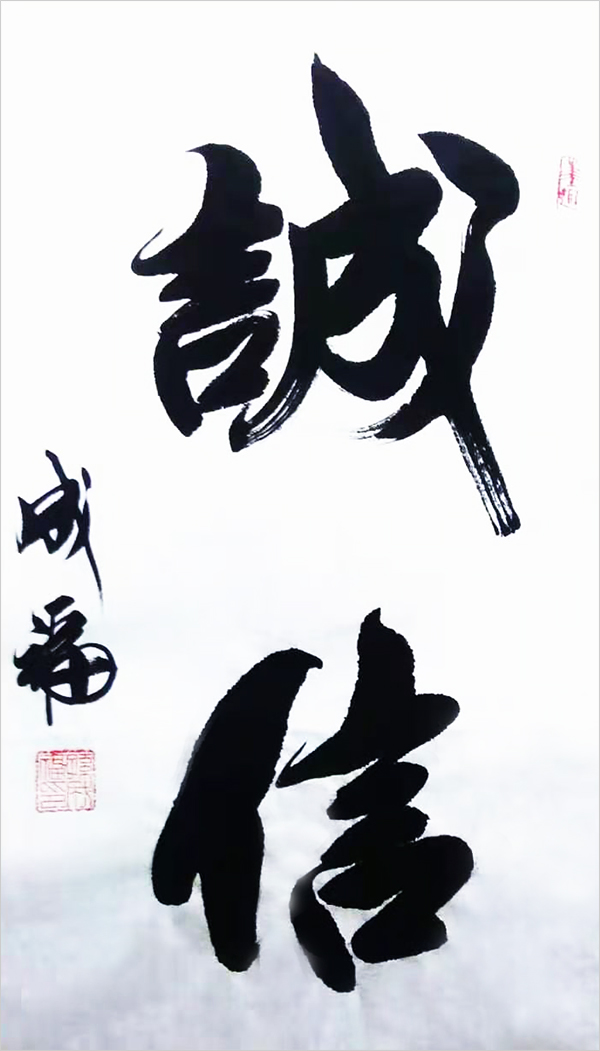 誠信
成福